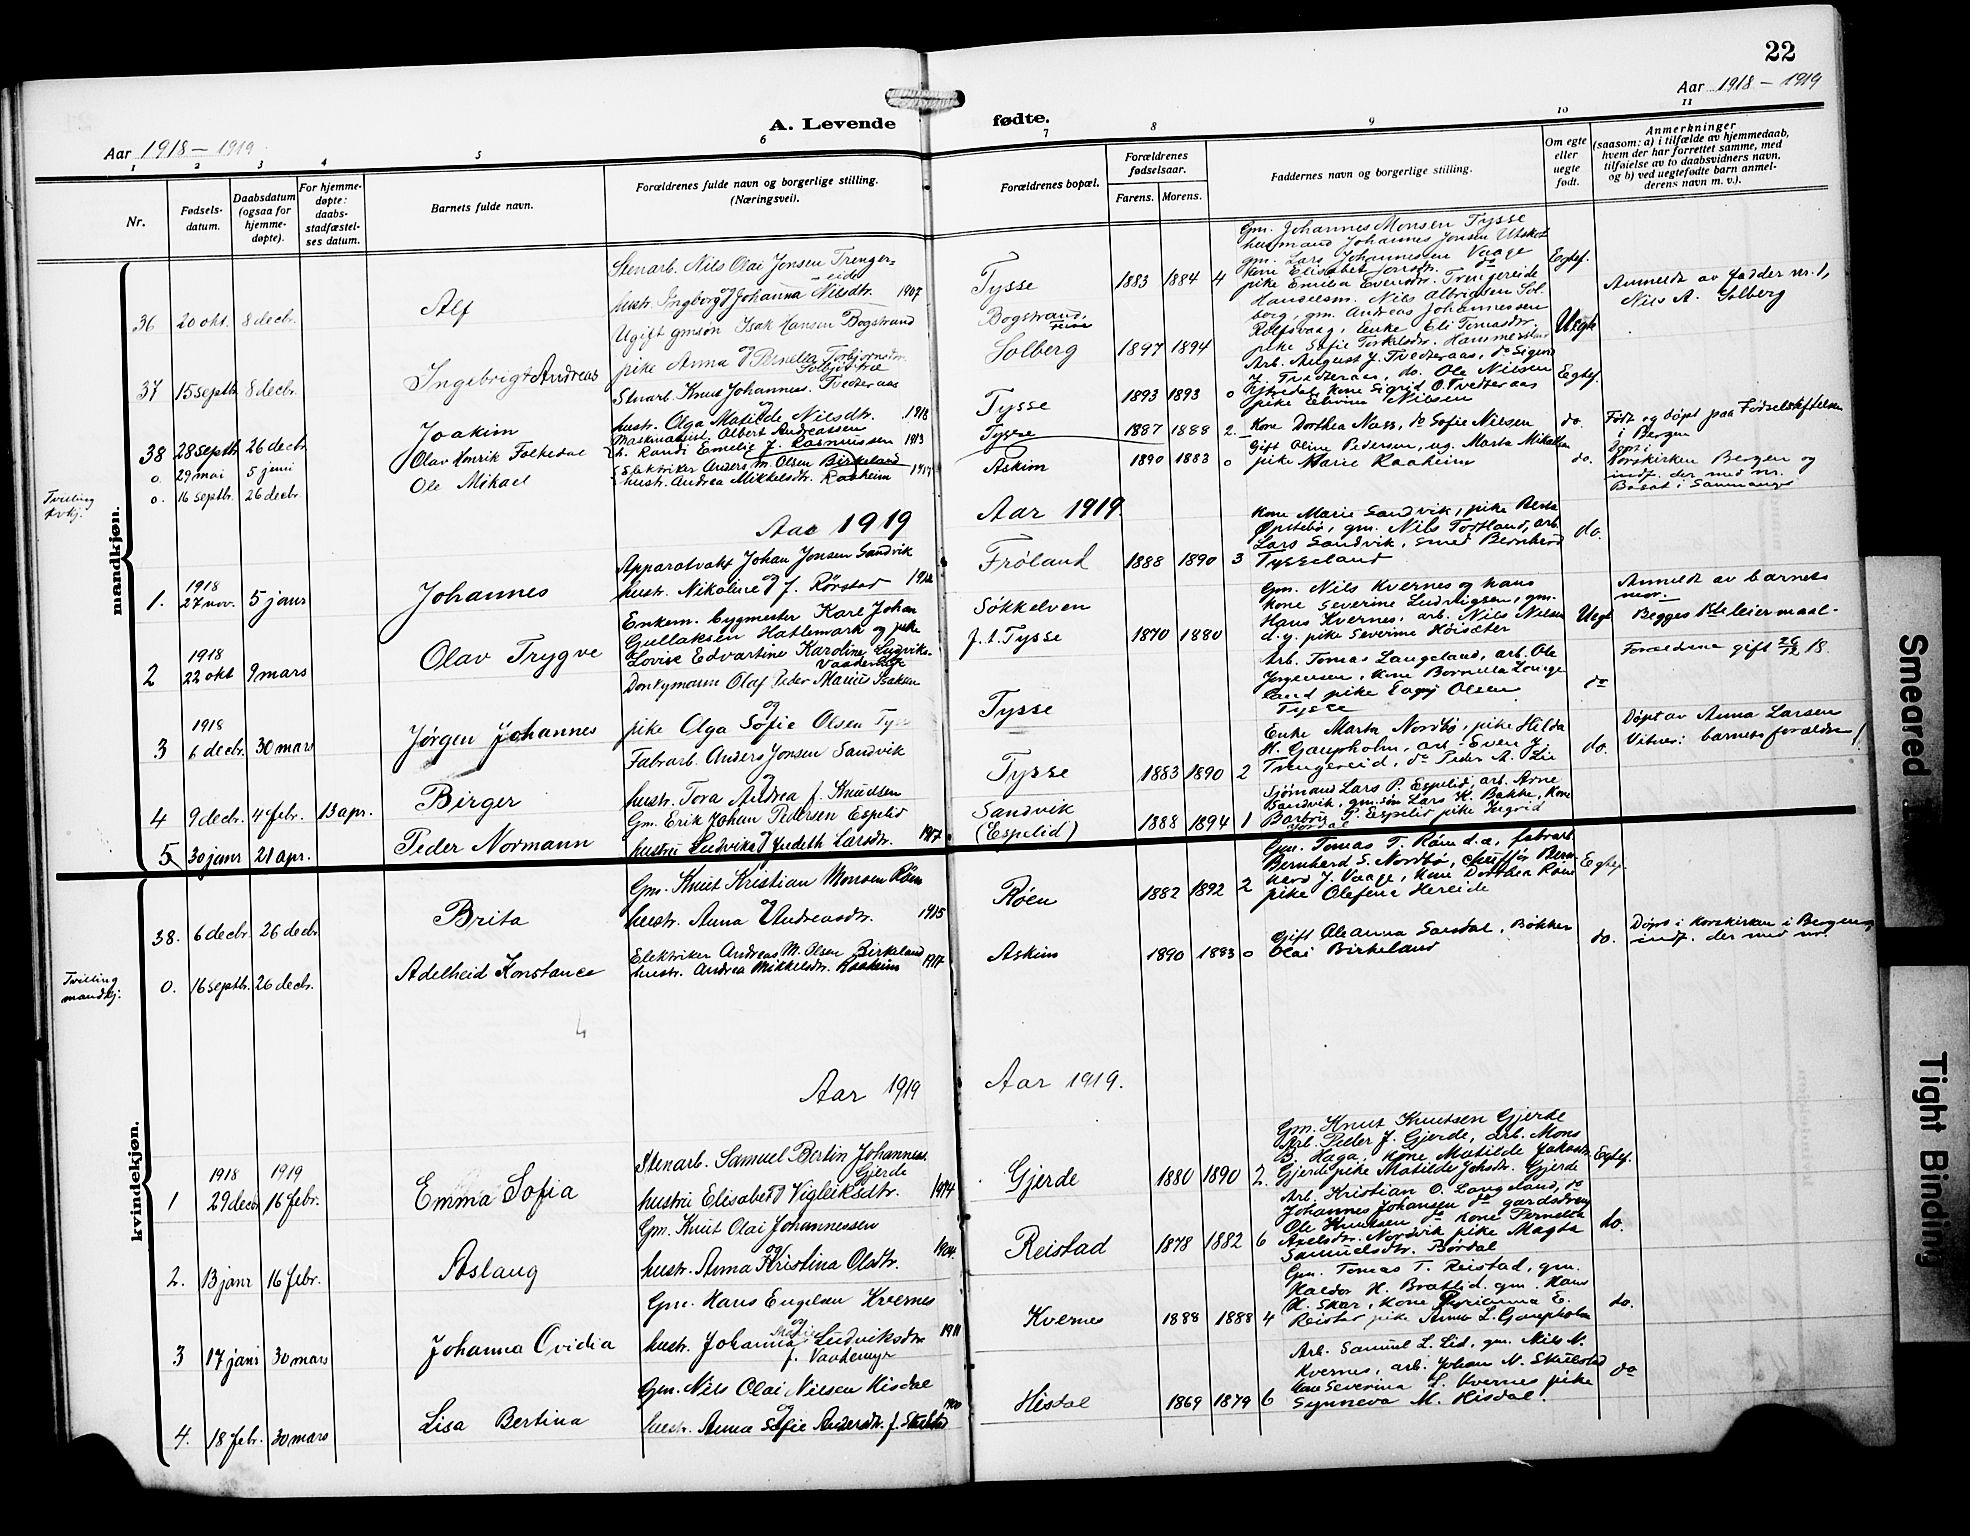 22
Aar 1918 – 1919
A. Levende fødte.
Aar 1918 – 1919
1 2 3 4 5 6 7 8 9 10 11
Nr.
Fødsels-
datum.
Daabsdatum
(ogsaa for
hjemme-
døpte).
For hjemme-
døpte:
daabs-
stadfæstel-
ses datum.
Barnets fulde navn.
Forældrenes fulde navn og borgerlige stilling.
(Næringsvei).
Forældrenes bopæl.
Forældrenes
fødselsaar.
Farens. Morens.
Faddernes navn og borgerlige stilling.
Om egte
eller
uegte
født.
Anmerkninger
(saasom: a) i tilfælde av hjemmedaab,
hvem der har forrettet samme, med
tilføielse av to daabsvidners navn,
og b) ved uegtefødte barn anmel-
derens navn m. v.).
mandkjøn.
36 20 okt. 8 decbr. Alf
Stenarb. Nils Olai Jonsen Trenger-
eide
og
hustr. Ingborg Johanna Nilsdtr. 1907
Tysse 1883 1884 4
Gm. Johannes Monsen Tysse
husmand Johannes Jonsen Utsket
gm. Lars Johannesen Vaage
kone Elisabet Jonsdtr. do
pike Emilia Evensdtr. Trengereide
Egtef.
37 15 septb. 8 decbr. Ingebrigt Andreas
Ugift gmsøn Isak Hansen Bogstrand
og
pike Anna Pernella Torbjørnsdtr.
Bogstrand,
Solberg 1897 1894
Handelsm. Nils Albrigtsen Sol-
berg, gm. Andreas Johannessen
Rolfsvaag, Enke Eli Tomasdtr.
pike Sofie Torkelsdtr. Hammersland
Uegte
Anmeldt av fadder nr. 1,
Nils A. Solberg
38 28 septb. 26 decbr. Joakim
Stenarb. Knut Johannes. Tvedteraas
og
hustr. Olga Matilde Nilsdtr. 1918
Tysse 1893 1893 0
Arb. August J. Tvedteraas, do Sigurd
J. Tvedteraas, do. Ole Nilsen
kone Sigrid O. Tvedteraas
pike Elvina Nielsen
Egtef.
0. 29 mai 5 juni Olav Henrik Folkedal
Maskinarb. Albert Andreassen
h. Randi Emelie f. Rasmussen 1913
Tysse 1887 1888 2.
Kone Dorthea Nass, do Sofie Nielsen
do.
Født og døpt paa Fødselsstiftelsen
i Bergen
Tvilling
kvkj.
0. 16 septbr. 26 decbr. Ole Mikael
Elektriker Anders M. Olsen Birkeland
hustr. Andrea Mikkelsdtr. Raaheim 1917
Askim 1890 1883 0
Gift Oline Pedersen, ug. Marta Mikalsen
pike Marie Raaheim
do.
Døpt i
Korskirken Bergen og
indf. der med nr.
Bosat i Samnanger
Aar 1919 Aar 1919.
1. 1918
27 nov. 5 janr Johannes
Apparatvakt Johan Jonsen Sandvik
og
hustr. Nikoline f. Rørstad
Frøland 1888 1890 3
Kone Marie Sandvik, pike Berta
Opstebø, gm. Nils Totland, arb.
Lars Sandvik, smed Bernhard
Tysseland
do.
2 1918
22 okt 9 mars Olav Trygve
Enkem. bygmester Karl Johan
Gullaksen Hatlemark og pike
Lovise Edvartine Karoline Ludvik-
Søkkelven
f. t. Tysse 1870 1880
Gm. Nils Kvernes og hans
kone Severine Ludvigsen, gm.
Hans Kvernes, arb. Nils Nilsen
d.y. pike Severine Høisæter
Uegt.
Anmeldt av barnets
mor.
Begges 1ste leiermaal.
3 1918
6 decbr. 30 mars Jørgen Johannes
Donkymann Olaf Peder Marius Isaksen
og
pike Olga Sofie Olsen Tysse
Tysse
Arb. Tomas Langeland, arb. Ole
Jørgensen, kone Bornilla Lange
land pike Olsen
Tysse
do
Forældrene gift 26/12 18.
4 9 decbr. 4 febr. 13 apr. Birger
Fabrarb. Anders Jonsen Sandvik
og
hustr. Tora Andrea f. Knudsen
Tysse 1883 1890 2
Enke Marta Nordbø, pike Hilda
H. Gaupholm, arb. Even J.
Trengereid, do Peder A. Lie
do.
Døpt av Anna Larsen
Vitner: barnets forældre!
5 30 janr 21 apr. Peder Normann
Gm. Erik Johan Pedersen Espelid
og
hustru Ludvika Judith Larsdtr. 1917
Sandvik
(Espelid) 1888 1894 1
Sjømand Lars P. Espelid, arb. Arne
Sandvik, gm.søn Lars K. Bakke, Kone
Barbro P. Espelid pike Ingrid
kvindekjøn.
38. 6 decbr. 26 decbr Brita
Gm. Knut Kristian Monsen Røen
og
hustr. Anna Andreasdtr. 1915
Røen 1882 1892 2
Gm. Tomas T. Røen d.æ, fabrarb.
Bernhard S. Nordbø, chauffør Bern
hard J. Vaage, kone Dorthea Røen
pike Olefine Hereide
Egtef.
Tvilling
mandkj.
0. 16 septbr. 26 decbr. Adelheid Konstance
Elektriker Andreas M. Olsen Birkeland
hustr. Andrea Mikkelsdtr. Raaheim 1917
Askim 1890 1883 0
Gift Oleanna Sandal, Bøkker
Olai Birkeland
do.
Døpt i Korskirken i Bergen og
indf. der med nr.
Aar 1919 Aar 1919.
1 1918 1919
29 decbr 16 febr. Emma Sofia
Stenarb. Samuel Bertin Johannes.
Gjerde
og
hustru Elisabet Vigleiksdtr. 1914
Gjerde 1880 1890 2.
Gm. Knut Knutsen Gjerde
Arb. Peder J. Gjerde, arb. Mons
B. Haga, kone Matilde Jakobsdtr.
Gjerde pike Matilde Johsdtr. Gjerde
Egtef.
2. 13 janr 16 febr. Aslaug
Gm. Knut Olai Johannessen
og
hustr. Anna Kristina Olsdtr. 1904.
Reistad 1878 1882 6
Arb. Kristian O. Langeland, do
Johannes Johansen do gardsdreng
Ole Knutsen do kone Pernella
Axelsdtr. Nordvik pike Magta
Samuelsdtr. Børdal
do.
3 17 janr 30 mars Johanna Ovidia
Gm. Hans Engelsen Kvernes
og
hustr. Johanna Ludviksdtr 1911
f. Vaademyr
Kvernes 1888 1888 4
Gm. Tomas T. Reistad, gm.
Haldor H. Bratlid. gm. Hans
H. Skar, kone E.
Reistad pike Anna L. Gaupholm
do.
4. 18 febr. 30 mars Lisa Bertina
Gm. Nils Olai Nilsen Hisdal
og
hustr. Anna Sofie Andersdtr. f. Skulstad 1900
Hisdal 1869 1879 6
Arb. Samuel L. Lid, gm. Nils N.
Kvernes, arb. Johan N. Skulstad
kone Severina L. Kvernes pike
Synneva M. Hisdal!
do
Smeared
Tight Binding